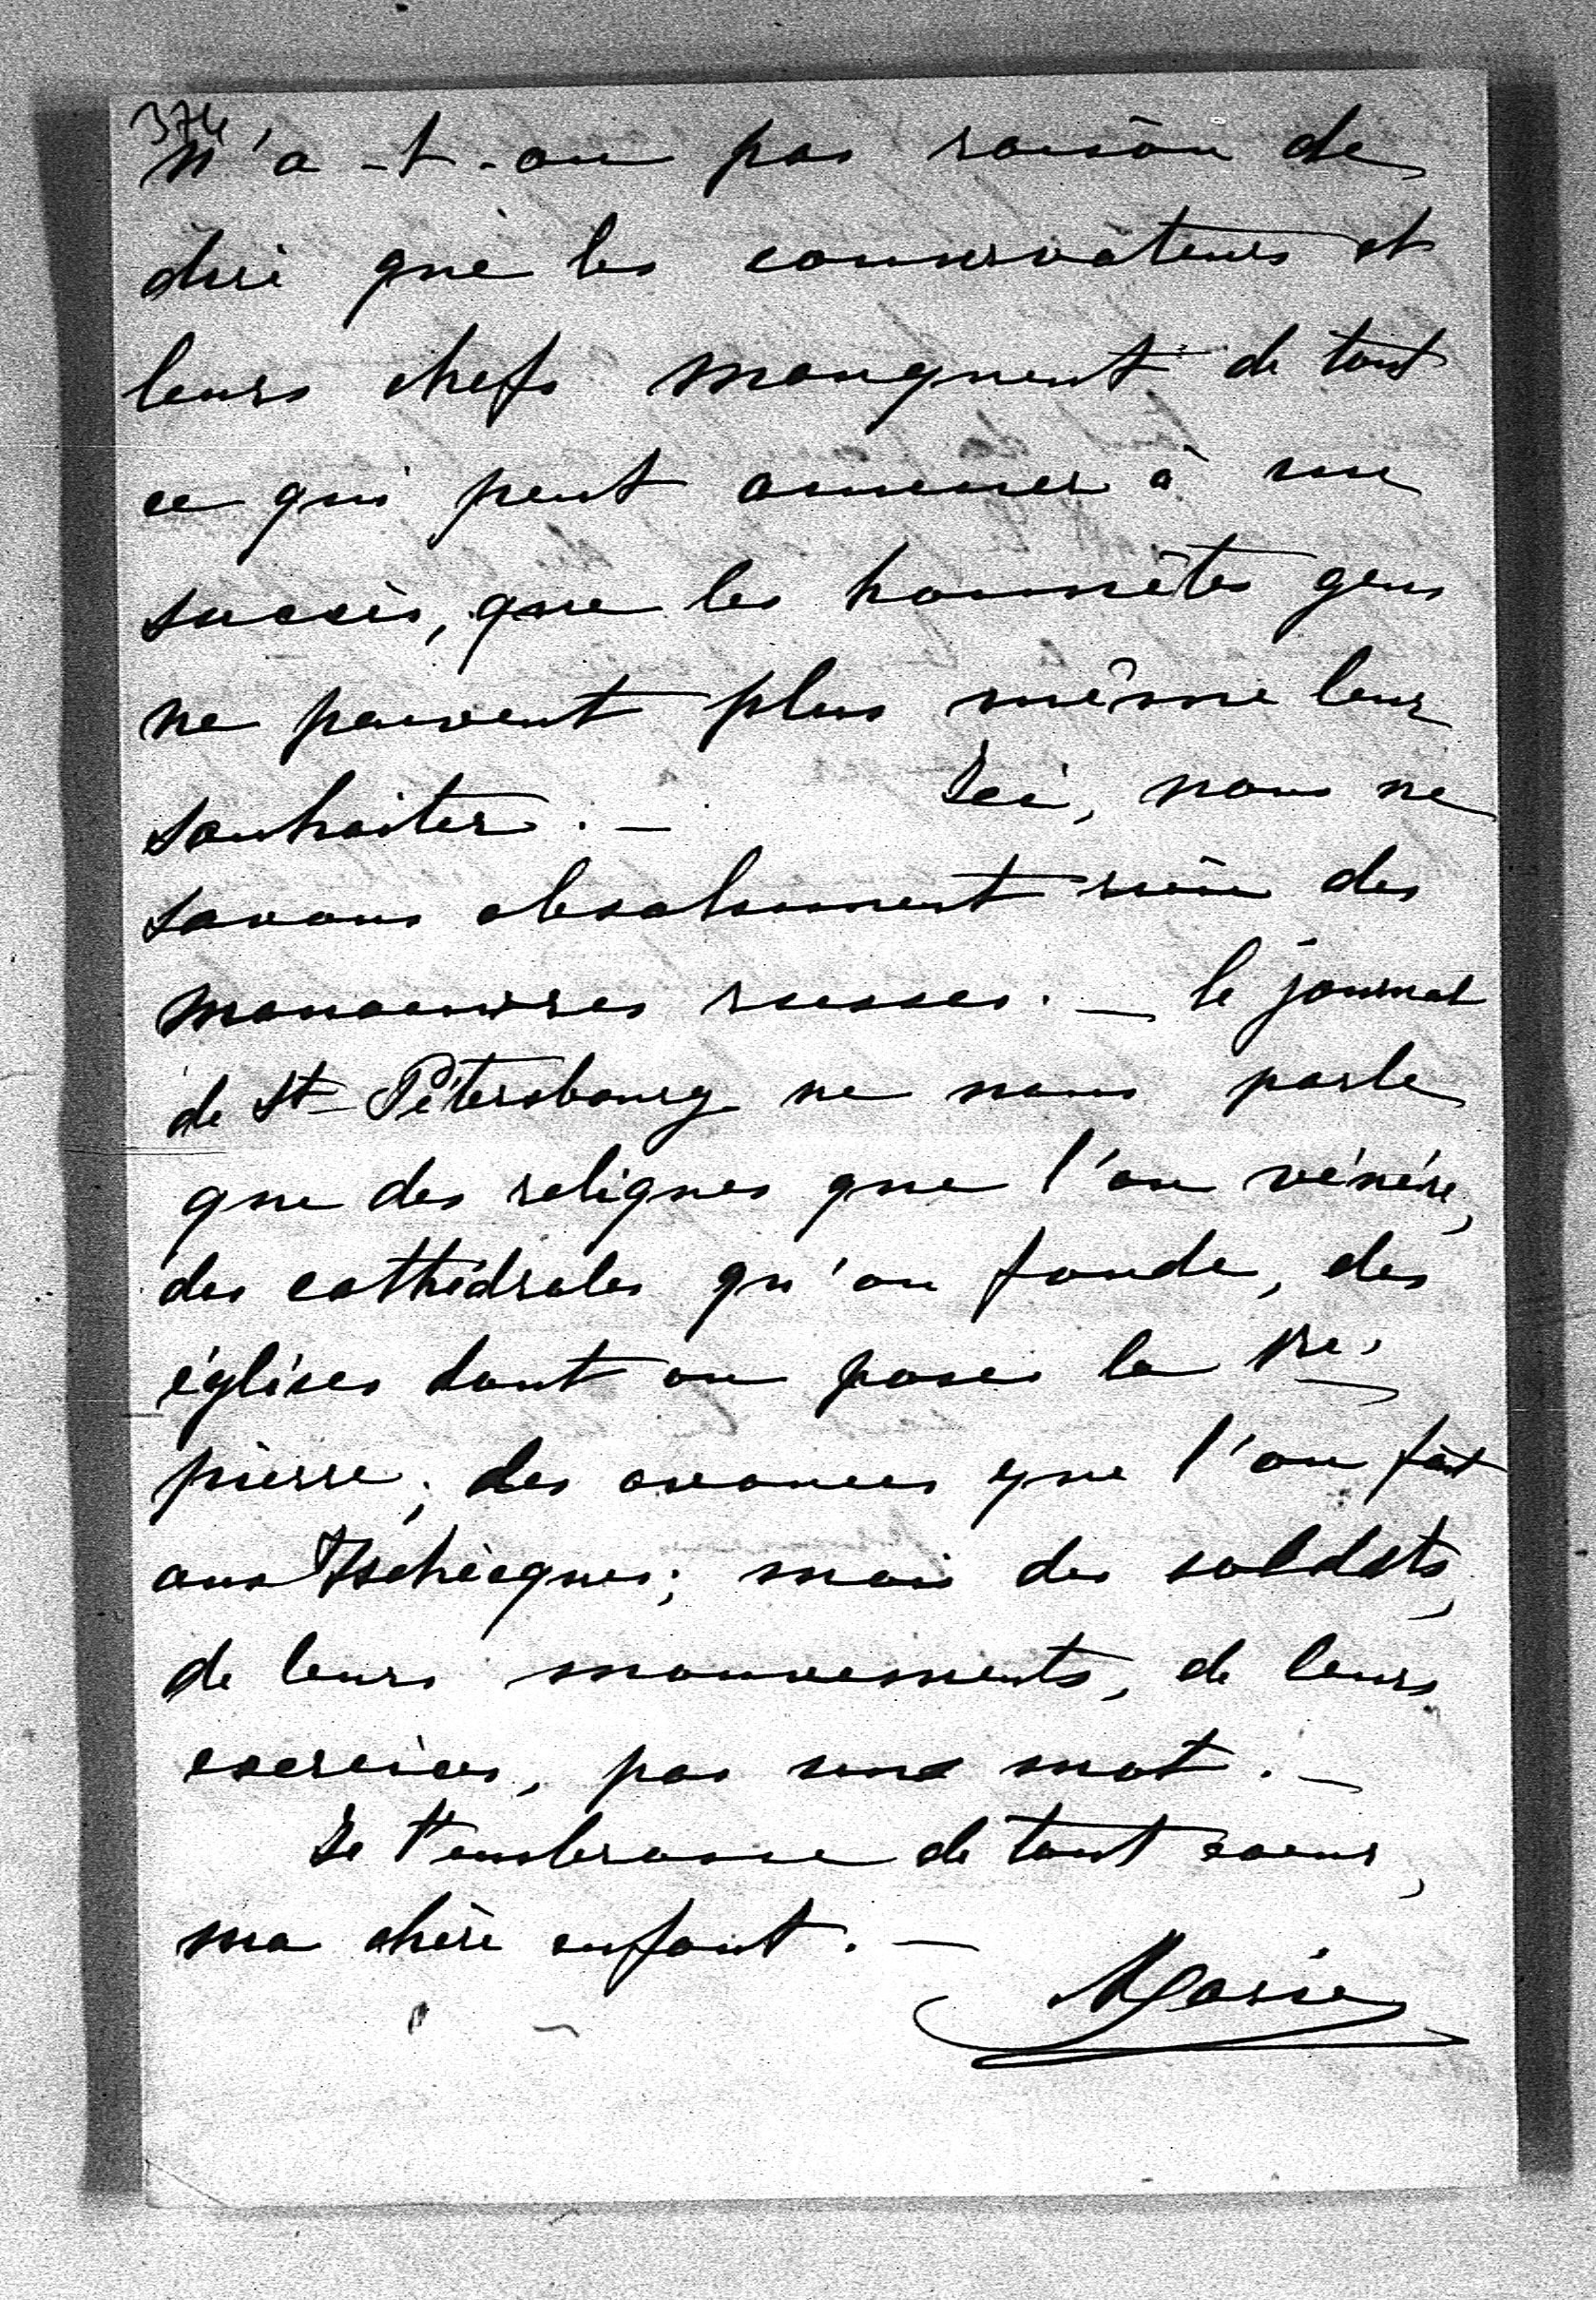 374
n'a-t-on pas raison de
dire que les conservateurs et
leurs chefs manquent de tout
ce qui peut amener à un
succès, que les honnêtes gens
ne peuvent plus même leur
souhaiter. — Ici, nous ne
savons absolument rien des
manoeuvres russes. — le journal
de St-Pétersbourg ne nous parle
que des reliques que l'on vénère,
des cathédrales qu'on fonde, des
églises dont on pose la 1re
pierre; des avances que l'on fait
aux Tschèques; mais des soldats,
de leurs mouvements, de leurs
exercices, pas un mot. —
Je t'embrasse de tout coeur,
ma chère enfant. —
Marie